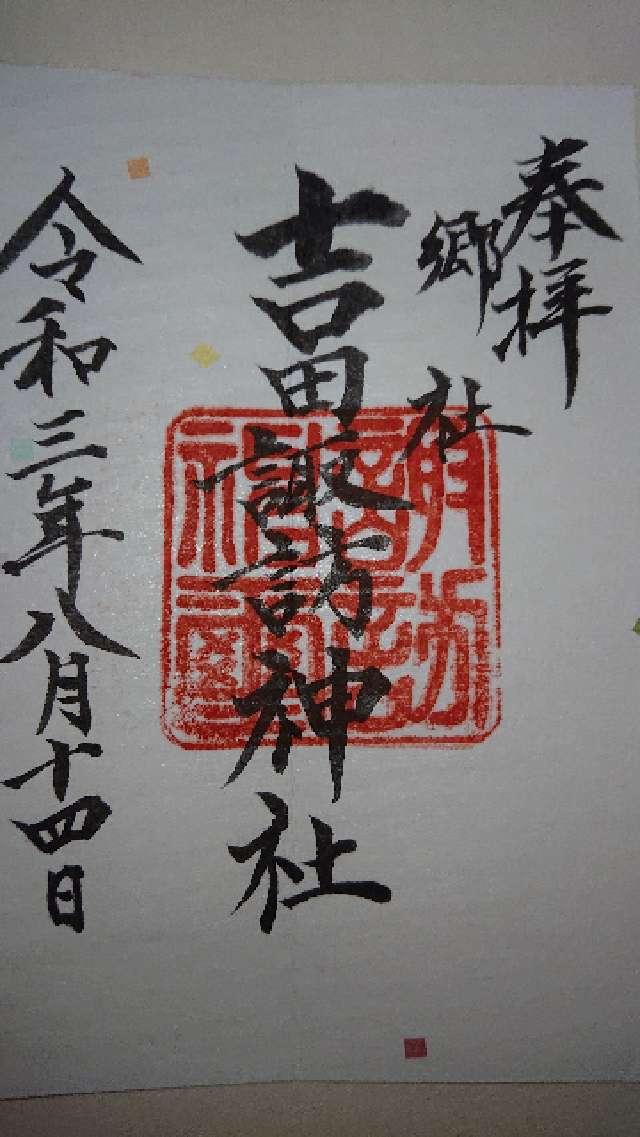 奉拝
郷社
吉田諏訪神社
令和三年八月十四日